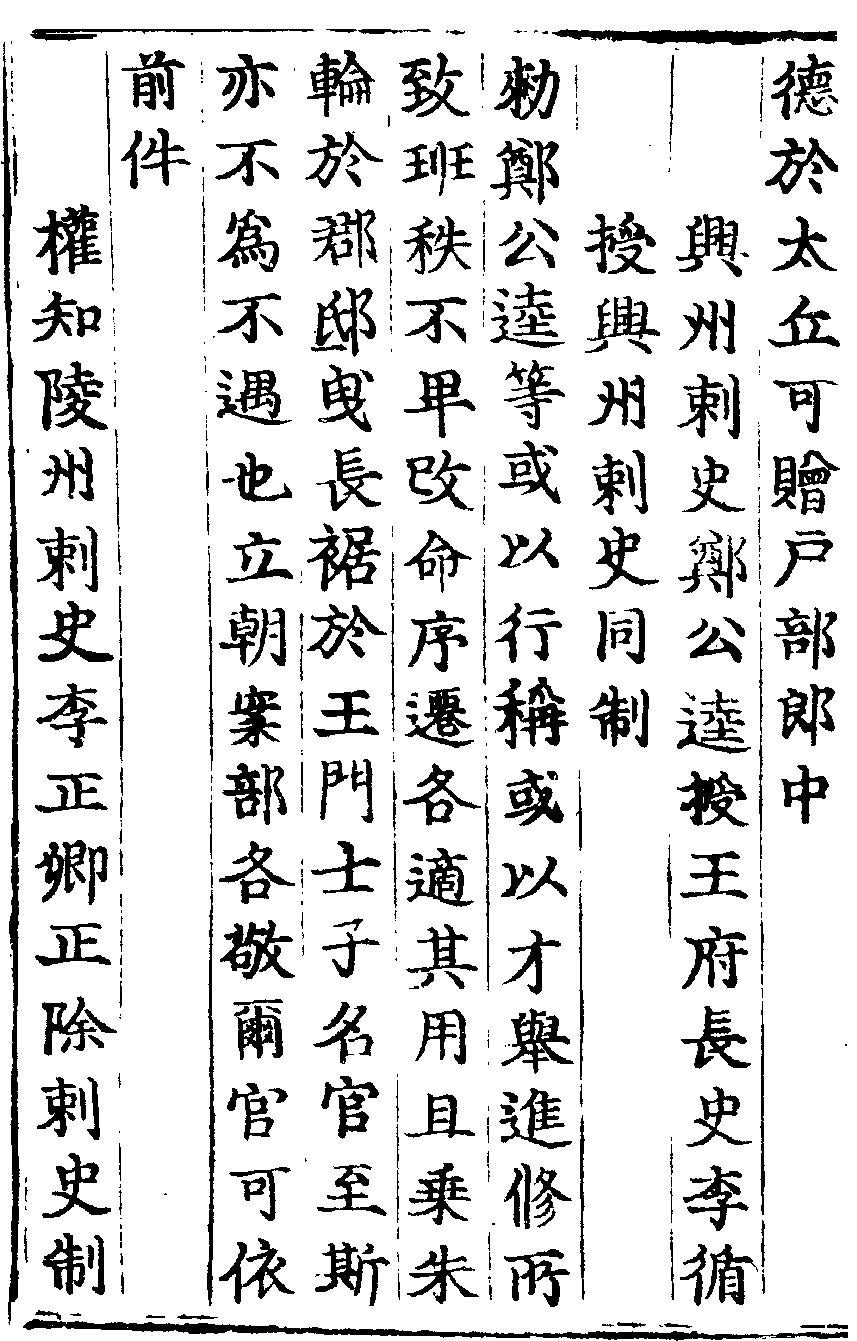 德於太丘可贈戸部郎中
興州刺史鄭公逵授王府長史李循
授興州刺史同制
勑鄭公逵等或以行稱或以才舉進修所
致班秩不卑改命序遷各適其用且乗朱
輪於郡邸曵長裾於王門士子名官至斯
亦不爲不遇也立朝案部各敬爾官可依
前件
權知陵州刺史李正卿正除刺史制